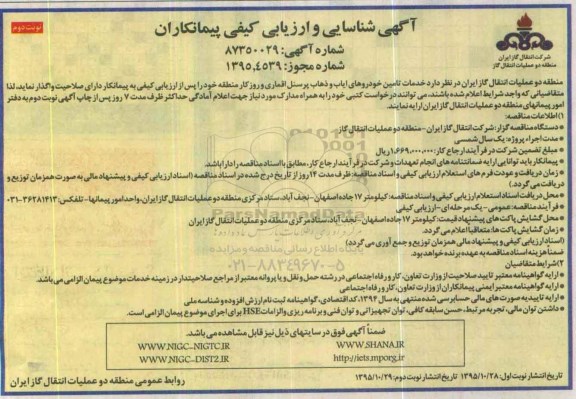 نوبت دوم
آگهی شناسایی و ارزیابی کیفی پیمانکاران
شماره آگهی: ۸۷۳۵۰۰۲۹
شماره مجوز: ۱۳۹۵،۴۵۳۹
شرکت انتقال گاز ایران
منطقه دو عملیات انتقال گاز
منطقه دو عملیات انتقال گاز ایران در نظر دارد خدمات تامین خودروهای ایاب و ذهاب پرسنل اقماری و روز کار منطقه خود را پس از ارزیابی کیفی به پیمانکار دارای صلاحیت واگذار نماید، لذا
متقاضیانی که واجد شرایط اعلام شده باشند، می توانند درخواست کتبی خود را به همراه مدارک مورد نیاز جهت اعلام آمادگی حداکثر ظرف مدت ۷ روز پس از چاپ آگهی نوبت دوم به دفتر
امور پیمانهای منطقه دو عملیات انتقال گاز ایران ارایه نمایند.
۱) اطلاعات مناقصه:
• دستگاه مناقصه گزار: شرکت انتقال گاز ایران - منطقه دو عملیات انتقال گاز
• مدت اجراء پروژه: یک سال شمسی
• مبلغ تضمین شرکت در فرآیند ارجاع کار: ۱،۶۶۹،۰۰۰،۰۰۰ ریال
• پیمانکار باید توانایی ارایه ضمانتنامه های انجام تعهدات و شرکت در فرآیند ارجاع کار، مطابق با اسناد مناقصه را دارا باشد.
• زمان دریافت و عودت فرم های استعلام ارزیابی کیفی و اسناد مناقصه: ظرف مدت ۱۴ روز از تاریخ درج شده در اسناد مناقصه (اسناد ارزیابی کیفی و پیشنهاد مالی به صورت همزمان توزیع و
دریافت می گردد.)
• محل دریافت اسناد استعلام ارزیابی کیفی و اسناد مناقصه: کیلومتر ۱۷ جاده اصفهان - نجف آباد، ستاد مرکزی منطقه دو عملیات انتقال گاز ایران، واحد امور پیمانها - تلفکس: ۳۶۲۸۱۴۱۳-۰۳۱
• فرآیند مناقصه: عمومی - یک مرحله ای - ارزیابی کیفی
• محل گشایش پاکت های پیشنهاد قیمت: کیلومتر ۱۷ جاده اصفهان - نجف آباد، ستاد مرکزی منطقه دو عملیات انتقال گاز ایران
• زمان گشایش پاکت ها: متعاقبا اعلام می گردد
(اسناد ارزیابی کیفی و پیشنهاد مالی همزمان توزیع و جمع آوری می گردد)
ضمناً هزینه اسناد مناقصه به عهده برنده خواهد بود.
۲) شرایط متقاضیان
• ارایه گواهینامه معتبر تایید صلاحیت از وزارت تعاون، کار و رفاه اجتماعی در رشته حمل و نقل و یا پروانه معتبر از مراجع صلاحیتدار در زمینه خدمات موضوع پیمان الزامی می باشد.
• ارایه گواهینامه معتبر ایمنی پیمانکاران از وزارت تعاون، کار و رفاه اجتماعی
• ارایه تاییدیه صورت های مالی حسابرسی شده منتهی به سال ۱۳۹۴، کد اقتصادی، گواهینامه ثبت نام ارزش افزوده و شناسه ملی
• داشتن توان مالی، تجربه مرتبط، حسن سابقه کافی، توان تجهیزاتی و توان فنی و برنامه ریزی و الزامات HSE برای اجرای موضوع پیمان الزامی است.
ضمناً آگهی فوق در سایتهای ذیل نیز قابل مشاهده می باشد.
WWW.NIGC-NIGTC.IR WWW.SHANA.IR
WWW.NIGC-DIST2.IR http://iets.mporg.ir
تاریخ انتشار نوبت اول: ۱۳۹۵/۱۰/۲۸ تاریخ انتشار نوبت دوم: ۱۳۹۵/۱۰/۲۹
روابط عمومی منطقه دو عملیات انتقال گاز ایران
پایگاه اطلاع رسانی مناقصه و مزایده
۰۲۱-۸۸۳۴۹۶۷۰-۵